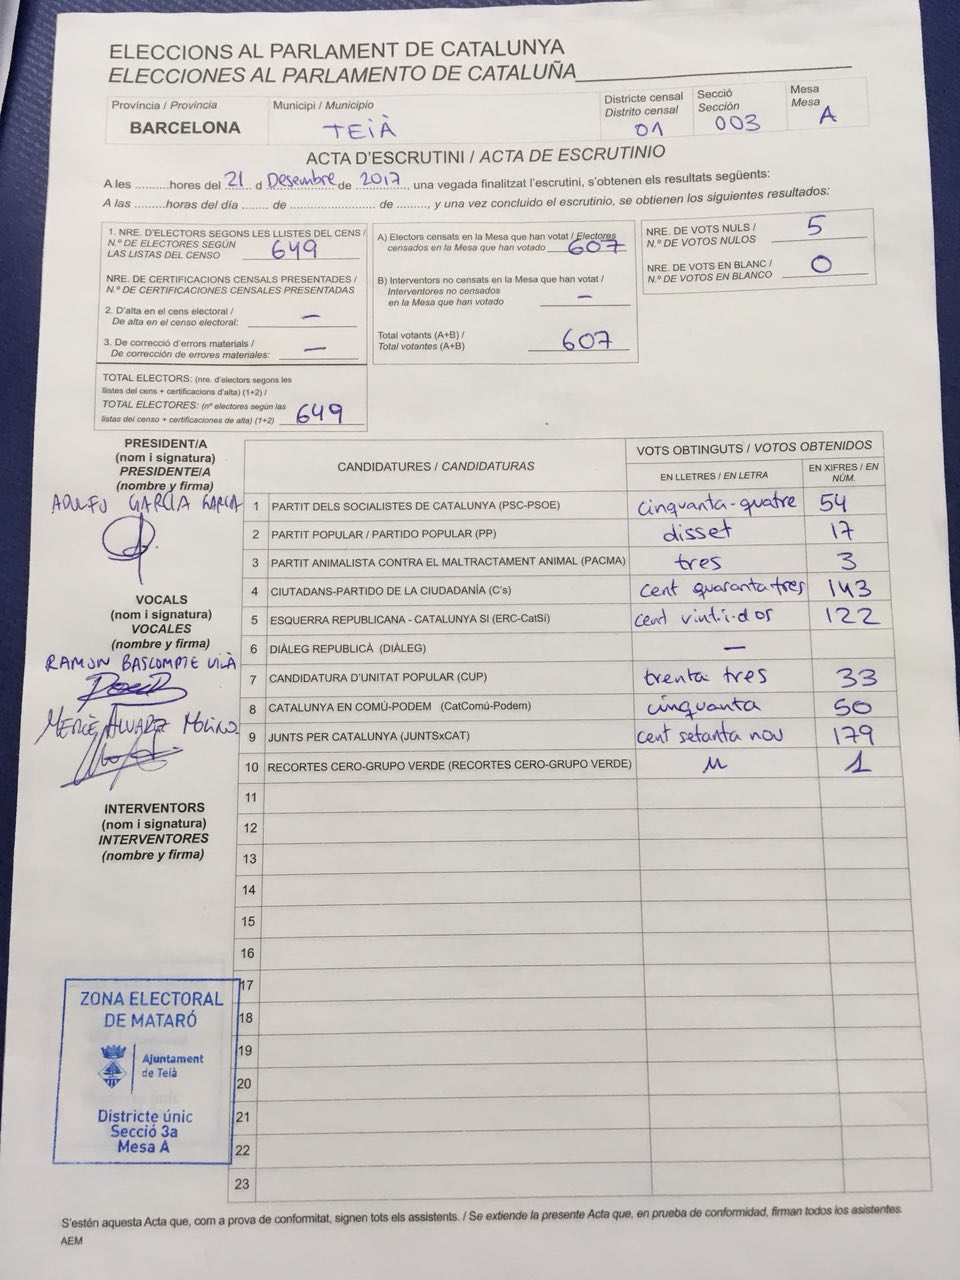 ELECCIONS AL PARLAMENT DE CATALUNYA
ELECCIONES AL PARLAMENTO DE CATALUÑA
Província / Provincia
BARCELONA
Municipi / Municipio
TEIÀ
Districte censal
Distrito censal
01
Secció
Sección
003
Mesa
Mesa
A
ACTA D'ESCRUTINI / ACTA DE ESCRUTINIO
A les ..........hores del 21 d Desembre de 2017, una vegada finalitzat l'escrutini, s'obtenen els resultats següents:
A las ..........horas del día ........ de .......................... de ........, y una vez concluido el escrutinio, se obtienen los siguientes resultados:
1. NRE. D'ELECTORS SEGONS LES LLISTES DEL CENS /
N.º DE ELECTORES SEGÚN
LAS LISTAS DEL CENSO 649
NRE. DE CERTIFICACIONS CENSALS PRESENTADES /
N.º DE CERTIFICACIONES CENSALES PRESENTADAS
2. D'alta en el cens electoral /
De alta en el censo electoral: —
3. De correcció d'errors materials /
De corrección de errores materiales: —
TOTAL ELECTORS: (nre. d'electors segons les
llistes del cens + certificacions d'alta) (1+2) /
TOTAL ELECTORES: (nº electores según las
listas del censo + certificaciones de alta) (1+2) 649
A) Electors censats en la Mesa que han votat / Electores
censados en la Mesa que han votado 607
B) Interventors no censats en la Mesa que han votat /
Interventores no censados
en la Mesa que han votado —
Total votants (A+B) /
Total votantes (A+B) 607
NRE. DE VOTS NULS /
N.º DE VOTOS NULOS 5
NRE. DE VOTS EN BLANC /
N.º DE VOTOS EN BLANCO 0
PRESIDENT/A
(nom i signatura)
PRESIDENTE/A
(nombre y firma)
ADOLFO GARCÍA GARCÍA
VOCALS
(nom i signatura)
VOCALES
(nombre y firma)
RAMON BASCOMPTE VILÀ
MERCÈ ALVAREZ MOLINO
INTERVENTORS
(nom i signatura)
INTERVENTORES
(nombre y firma)
CANDIDATURES / CANDIDATURAS
VOTS OBTINGUTS / VOTOS OBTENIDOS
EN LLETRES / EN LETRA
EN XIFRES / EN
NÚM.
1 PARTIT DELS SOCIALISTES DE CATALUNYA (PSC-PSOE) cinquanta-quatre 54
2 PARTIT POPULAR / PARTIDO POPULAR (PP) disset 17
3 PARTIT ANIMALISTA CONTRA EL MALTRACTAMENT ANIMAL (PACMA) tres 3
4 CIUTADANS-PARTIDO DE LA CIUDADANÍA (C's) cent quaranta tres 143
5 ESQUERRA REPUBLICANA - CATALUNYA SI (ERC-CatSí) cent vint-i-dos 122
6 DIÀLEG REPUBLICÀ (DIÀLEG) —
7 CANDIDATURA D'UNITAT POPULAR (CUP) trenta tres 33
8 CATALUNYA EN COMÚ-PODEM (CatComú-Podem) cinquanta 50
9 JUNTS PER CATALUNYA (JUNTSxCAT) cent setanta nou 179
10 RECORTES CERO-GRUPO VERDE (RECORTES CERO-GRUPO VERDE) u 1
11
12
13
14
15
16
17
18
19
20
21
22
23
ZONA ELECTORAL
DE MATARÓ
Ajuntament
de Teià
Districte únic
Secció 3a
Mesa A
S'estén aquesta Acta que, com a prova de conformitat, signen tots els assistents. / Se extiende la presente Acta que, en prueba de conformidad, firman todos los asistentes.
AEM